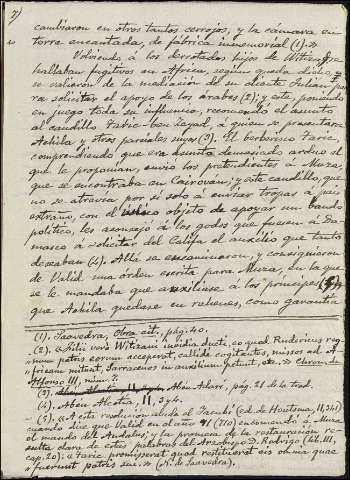 7)
cambiaron en otros tantos cerrojos, y la cámara en
torre encantada, de fábrica inmemorial (1).»
Volviendo á los derrotados hijos de Witiza, que
hallaban fugitivos en Africa, según queda dicho,
se valieron de la mediación de su cliente Julián, pa-
ra solicitar el apoyo de los árabes (2); y este, poniendo
en juego toda su influencia, recomendó el asunto
al caudillo Taric ben Zeyad, á quien se presentaron
Achila y otros parciales suyos (3). El berberisco Taric,
comprendiendo que era asunto demasiado arduo el
que le proponían, envió los pretendientes á Muza,
que se encontraba en Cairován; y este caudillo, que
no se atrevía por sí solo á enviar tropas á país
extraño, con el único objeto de apoyar un bando
político, les aconsejó á los godos que fuesen á Da-
masco á solicitar del Califa el auxilio que tanto
deseaban (4). Allí se encaminaron, y consiguieron
de Valid una órden escrita para Muza, en la que
se le mandaba que auxiliase á los príncipes (5) y
que Achila quedase en rehenes, como garantía
(1). Saavedra, Obra cit., pág. 40.
(2). «Filii vero Witizani invidia ducti, eo quod Rudericus reg-
num patris eorum acceperat, callide cogitantes, missos ad A-
fricam mittunt, Sarracenos in auxilium petunt, etc.» Chron. de
Alfonso III, núm. 7.
(3). Aben Adarí, pág. 21 de la trad.
(4). Aben Alcotia, II, 3 y 4.
(5). «A esta resolución alude el Jacubí (ed. de Houtsma, II, 341)
cuando dice que Valid en el año 91 (710) encomendó á Muza
el mando del Andalus; y la promesa de la restauración re-
sulta clara de estas palabras del Arzobispo D. Rodrigo (lib. III,
cap. 20): «Taric promisserat quod restitueret eis omnia quae
«fuerunt patris sui.» (N. de Saavedra).